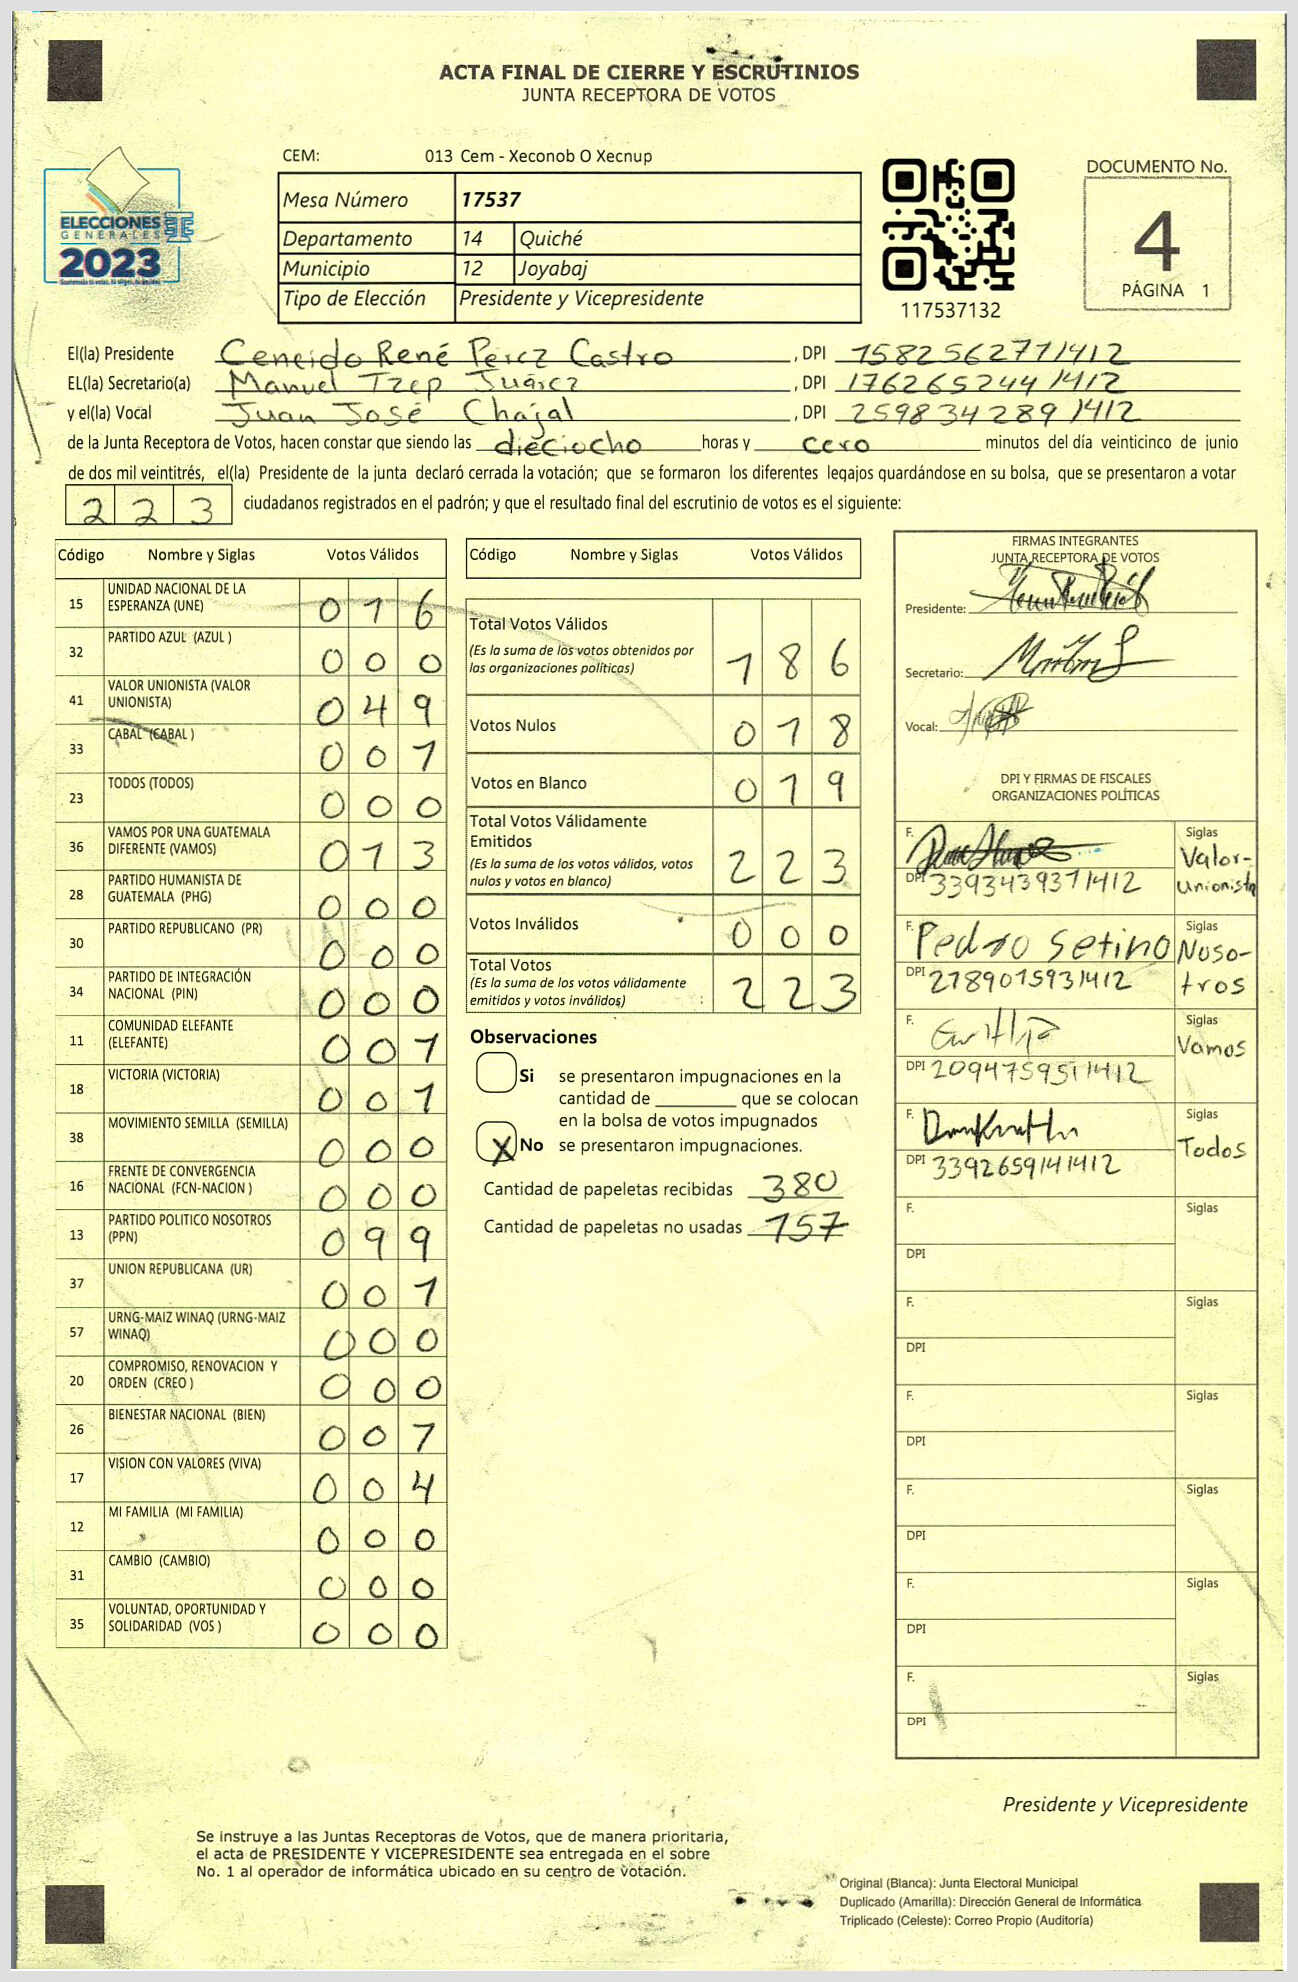 ACTA FINAL DE CIERRE Y ESCRUTINIOS
JUNTA RECEPTORA DE VOTOS
CEM: 013 Cem - Xeconob O Xecnup
ELECCIONES
GENERALES
2023
Mesa Número 17537
Departamento 14 Quiché
Municipio 12 Joyabaj
Tipo de Elección Presidente y Vicepresidente
117537132
DOCUMENTO No.
4
PÁGINA 1
El(la) Presidente Ceneido René Perez Castro, DPI 1582562771412
EL(la) Secretario(a) Manuel Tzep Juárez, DPI 1762652441412
y el(la) Vocal Juan José Chajal, DPI 2598342891412
de la Junta Receptora de Votos, hacen constar que siendo las dieciocho horas y cero minutos del día veinticinco de junio
de dos mil veintitrés, el(la) Presidente de la junta declaró cerrada la votación; que se formaron los diferentes legajos quardándose en su bolsa, que se presentaron a votar
223 ciudadanos registrados en el padrón; y que el resultado final del escrutinio de votos es el siguiente:
Código Nombre y Siglas Votos Válidos
15 UNIDAD NACIONAL DE LA ESPERANZA (UNE) 016
32 PARTIDO AZUL (AZUL ) 000
41 VALOR UNIONISTA (VALOR UNIONISTA) 049
33 CABAL (CABAL ) 001
23 TODOS (TODOS) 000
36 VAMOS POR UNA GUATEMALA DIFERENTE (VAMOS) 013
28 PARTIDO HUMANISTA DE GUATEMALA (PHG) 000
30 PARTIDO REPUBLICANO (PR) 000
34 PARTIDO DE INTEGRACIÓN NACIONAL (PIN) 000
11 COMUNIDAD ELEFANTE (ELEFANTE) 001
18 VICTORIA (VICTORIA) 001
38 MOVIMIENTO SEMILLA (SEMILLA) 000
16 FRENTE DE CONVERGENCIA NACIONAL (FCN-NACION ) 000
13 PARTIDO POLITICO NOSOTROS (PPN) 099
37 UNION REPUBLICANA (UR) 001
57 URNG-MAIZ WINAQ (URNG-MAIZ WINAQ) 000
20 COMPROMISO, RENOVACION Y ORDEN (CREO ) 000
26 BIENESTAR NACIONAL (BIEN) 001
17 VISION CON VALORES (VIVA) 004
12 MI FAMILIA (MI FAMILIA) 000
31 CAMBIO (CAMBIO) 000
35 VOLUNTAD, OPORTUNIDAD Y SOLIDARIDAD (VOS ) 000
Código Nombre y Siglas Votos Válidos
Total Votos Válidos
(Es la suma de los votos obtenidos por
las organizaciones políticas) 186
Votos Nulos 018
Votos en Blanco 019
Total Votos Válidamente
Emitidos
(Es la suma de los votos válidos, votos
nulos y votos en blanco) 223
Votos Inválidos 000
Total Votos
(Es la suma de los votos válidamente
emitidos y votos inválidos) 223
Observaciones
Si se presentaron impugnaciones en la
cantidad de ________ que se colocan
en la bolsa de votos impugnados
X No se presentaron impugnaciones.
Cantidad de papeletas recibidas 380
Cantidad de papeletas no usadas 157
FIRMAS INTEGRANTES
JUNTA RECEPTORA DE VOTOS
Presidente:
Secretario:
Vocal:
DPI Y FIRMAS DE FISCALES
ORGANIZACIONES POLÍTICAS
F. Siglas Valor-
DPI 3393439371412 Unionista
F. Pedro Setino Siglas Noso-
DPI 2789015931412 tros
F. Siglas Vamos
DPI 2094759511412
F. Siglas Todos
DPI 3392659141412
F. Siglas
DPI
F. Siglas
DPI
F. Siglas
DPI
F. Siglas
DPI
F. Siglas
DPI
F. Siglas
DPI
Presidente y Vicepresidente
Se instruye a las Juntas Receptoras de Votos, que de manera prioritaria,
el acta de PRESIDENTE Y VICEPRESIDENTE sea entregada en el sobre
No. 1 al operador de informática ubicado en su centro de votación.
Original (Blanca): Junta Electoral Municipal
Duplicado (Amarilla): Dirección General de Informática
Triplicado (Celeste): Correo Propio (Auditoría)